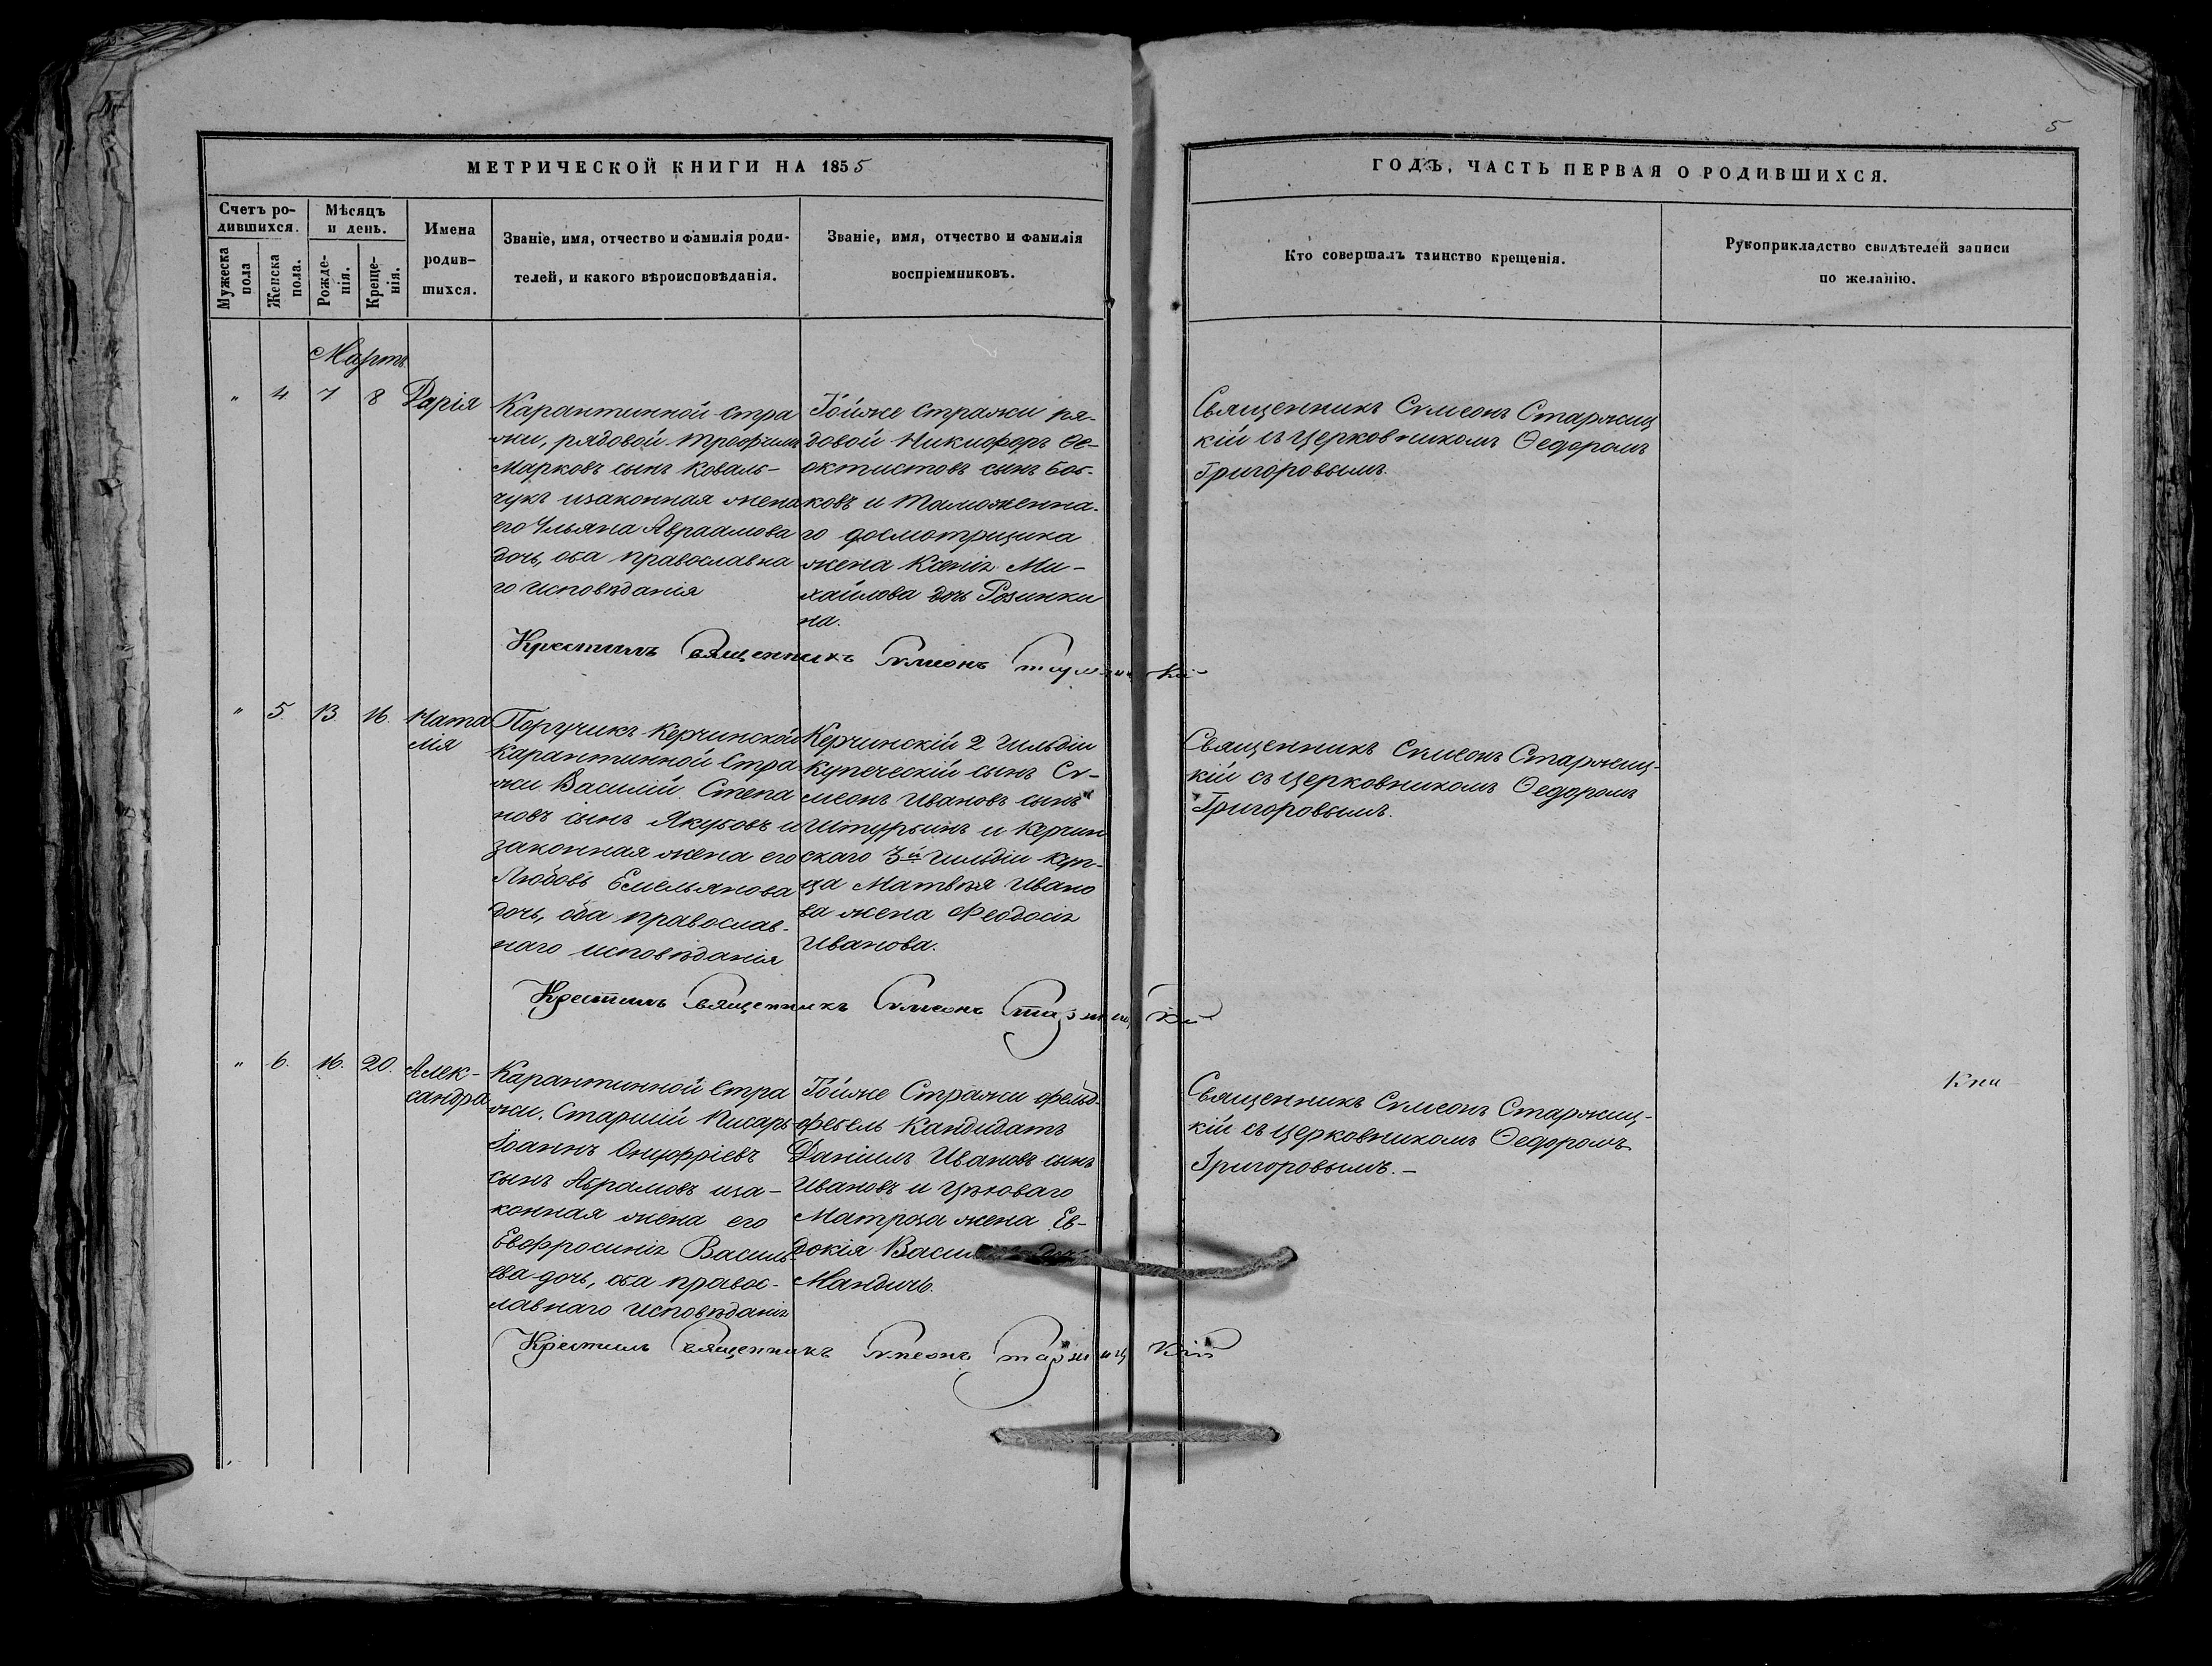 5
МЕТРИЧЕСКОЙ КНИГИ НА 1855
ГОДЪ, ЧАСТЬ ПЕРВАЯ О РОДИВШИХСЯ.
Счетъ ро-
дившихся.
Мужеска
пола
Женска
пола.
Мѣсяцъ
и день.
Рожде-
нія.
Креще-
нія.
Имена
родив-
шихся.
Званіе, имя, отчество и фамилія роди-
телей, и какого вѣроисповѣданія.
Званіе, имя, отчество и фамилія
воспріемниковъ.
Кто совершалъ таинство крещенія.
Рукоприкладство свидѣтелей записи
по желанію.
Мартъ.
" 4 7 8 Дарія
Карантинной Стра
жи, рядовой Трофимъ
Марковъ сынъ Коваль-
чукъ изаконная жена
его Ульяна Авраамова
дочь, оба православна
го исповѣданія
Тойже Стражи ря-
довой Никифоръ Ѳе-
октистовъ сынъ Боб-
ковъ и Таможенна-
го досмотрщика
жена Ксенія Ми-
хайлова дочь Розинки
на.
Священникъ Сѵмеонъ Старжиц
кій съ Церковникомъ Ѳедоромъ
Григоровымъ.
Крестилъ Священникъ Сѵмеонъ Старжицкій
" 5. 13. 16. Ната
лія
Поручикъ Керчинской
Карантинной Стра
жи Василій Степа
новъ сынъ Якубовъ и
законная жена его
Любовь Емельянова
дочь, оба православ-
наго исповѣданія
Керчинскій 2 Гильдіи
Купеческій сынъ Сѵ-
меонъ Ивановъ сынъ
Штурбинъ и Керчин
скаго 3й Гильдіи Куп-
ца Матвѣя Ивано
ва жена Феодосія
Иванова.
Священникъ Сѵмеонъ Старжиц-
кій съ Церковникомъ Ѳедоромъ
Григоровымъ.
Крестилъ Священникъ Сѵмеонъ Старжицкій
" 6. 16. 20. Алек-
сандра
Карантинной Стра
жи, Старшій Писарь
Іоаннъ Онуфріевъ
сынъ Абрамовъ иза-
конная жена его
Евфросинія Василь-
ева дочь, оба правос-
лавнаго исповѣданія
Тойже Стражи фельд-
фебель Кандидатъ
Даніилъ Ивановъ сынъ
Ивановъ и
Матроса жена Ев-
докія
Мандичъ.
Священникъ Сѵмеонъ Старжиц-
кій съ Церковникомъ Ѳедоромъ
Григоровымъ.-
Кни
Крестилъ Священникъ Сѵмеонъ Старжицкій